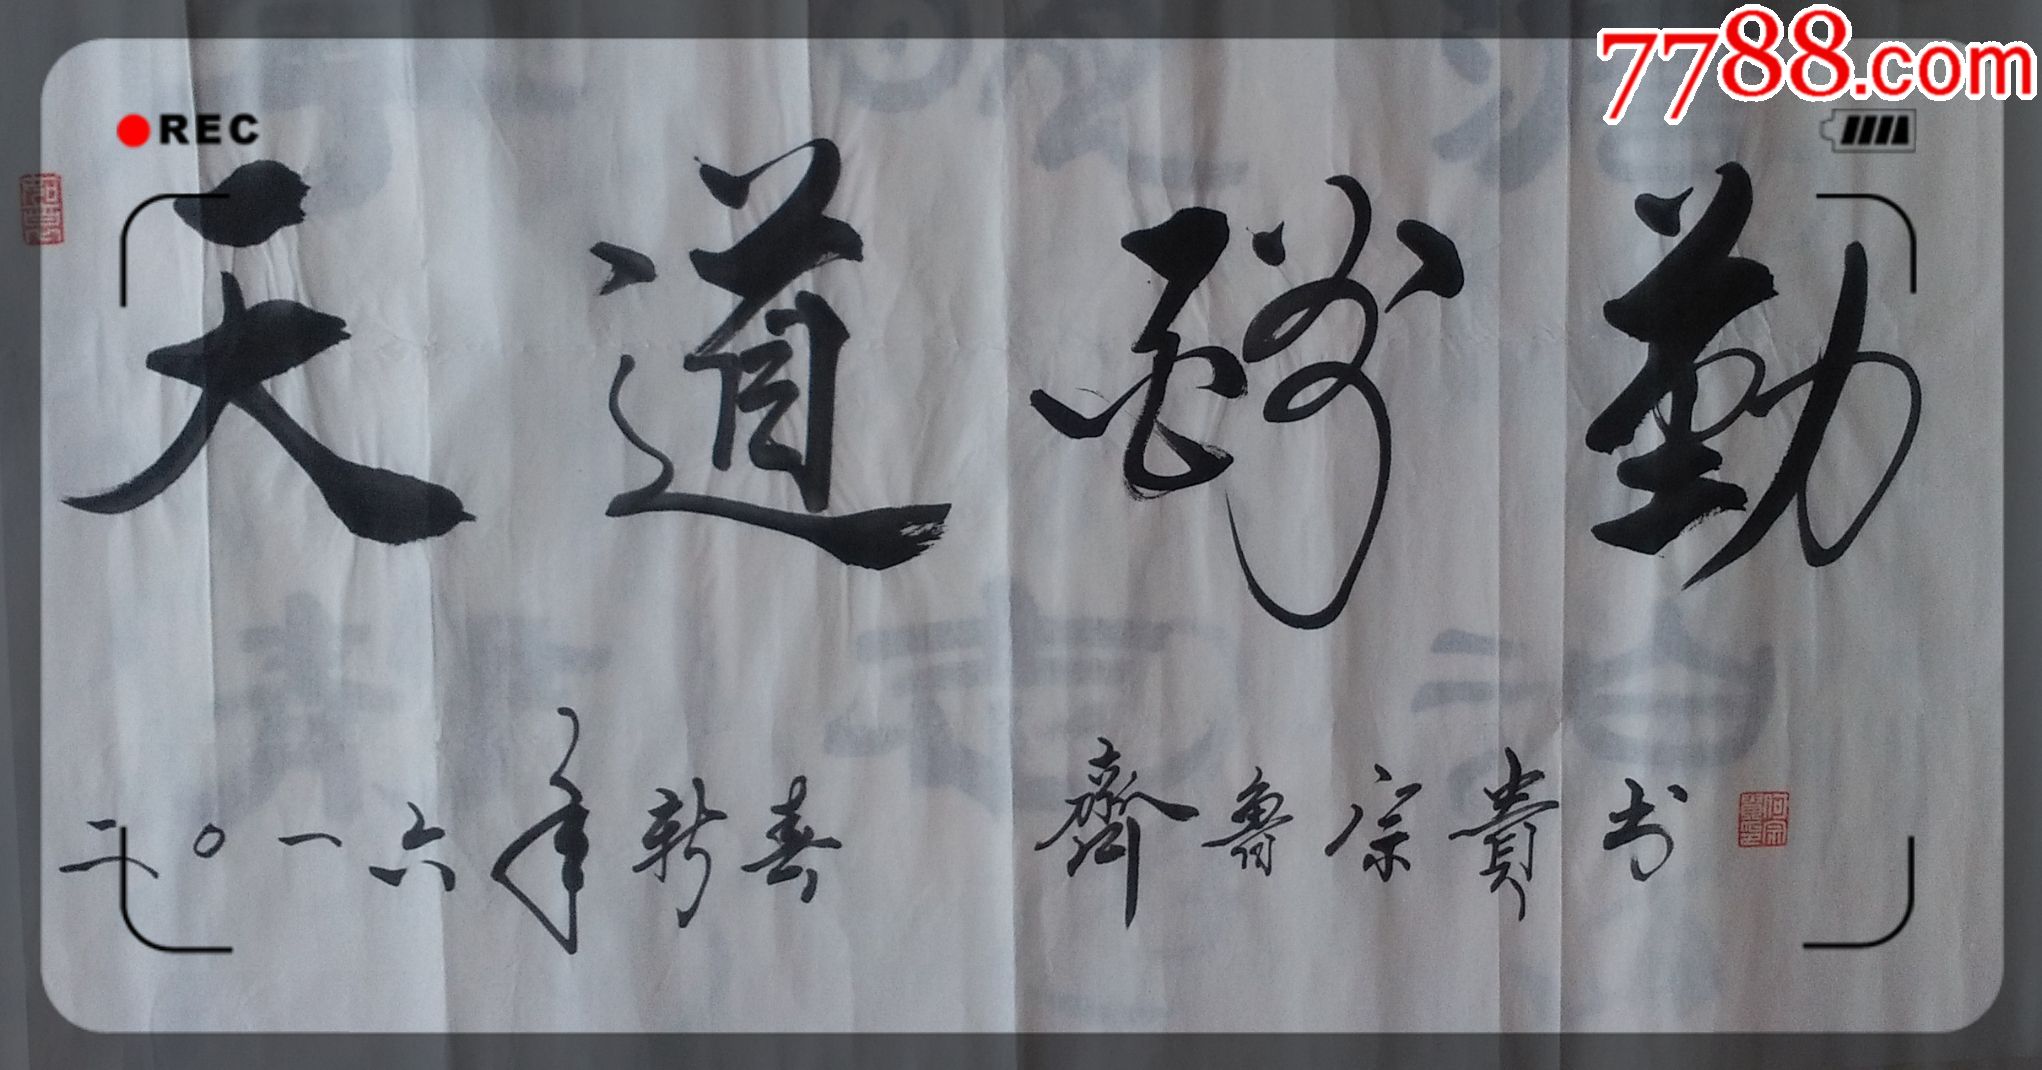 7788.com
REC
天道酬勤
二〇一六年新春 齊魯宗貴书